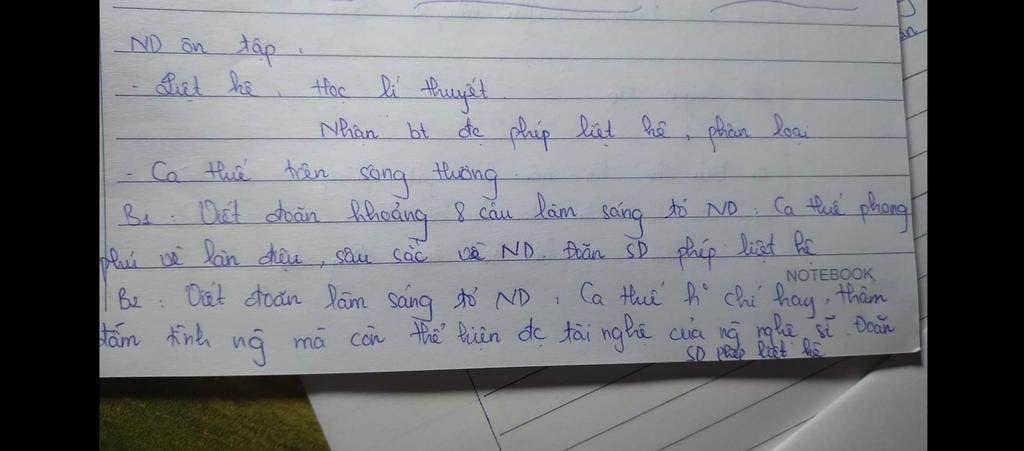 ND ôn tập.
- Liệt kê. Học lí thuyết.
Nhận bt đc phép liệt kê, phân loại
- Ca Huế trên sông Hương.
B1: Viết đoạn khoảng 8 câu làm sáng tỏ ND: Ca Huế phong
phú về làn điệu, sâu sắc về ND. Đoạn SD phép liệt kê
NOTEBOOK
B2: Viết đoạn làm sáng tỏ ND, Ca Huế k° chỉ hay, thấm
tấm tình ng mà còn thể hiện đc tài nghệ của ng nghệ sĩ. Đoạn
SD phép liệt kê